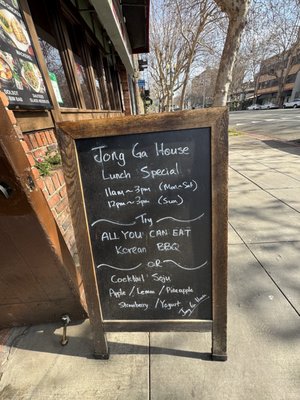 Jong Ga House
Lunch Special
11am ~ 3pm (Mon~Sat)
12pm ~ 3pm (Sun)
Try
ALL YOU CAN EAT
Korean BBQ
OR
Cocktail Soju
Apple / Lemon / Pineapple
Strawberry / Yogurt
Jong Ga House